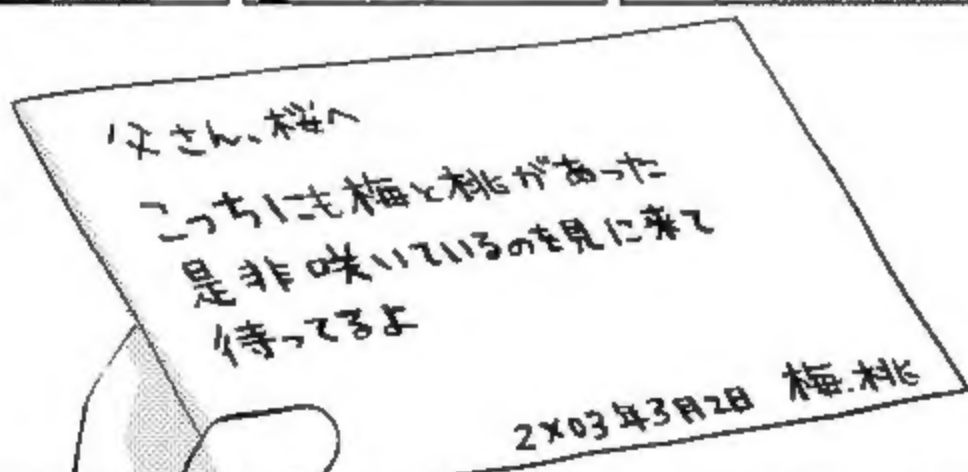 父さん、桜へ
こっちにも梅と桃があった
是非咲いているのを見に来て
待ってるよ
2X03年3月2日 梅.桃